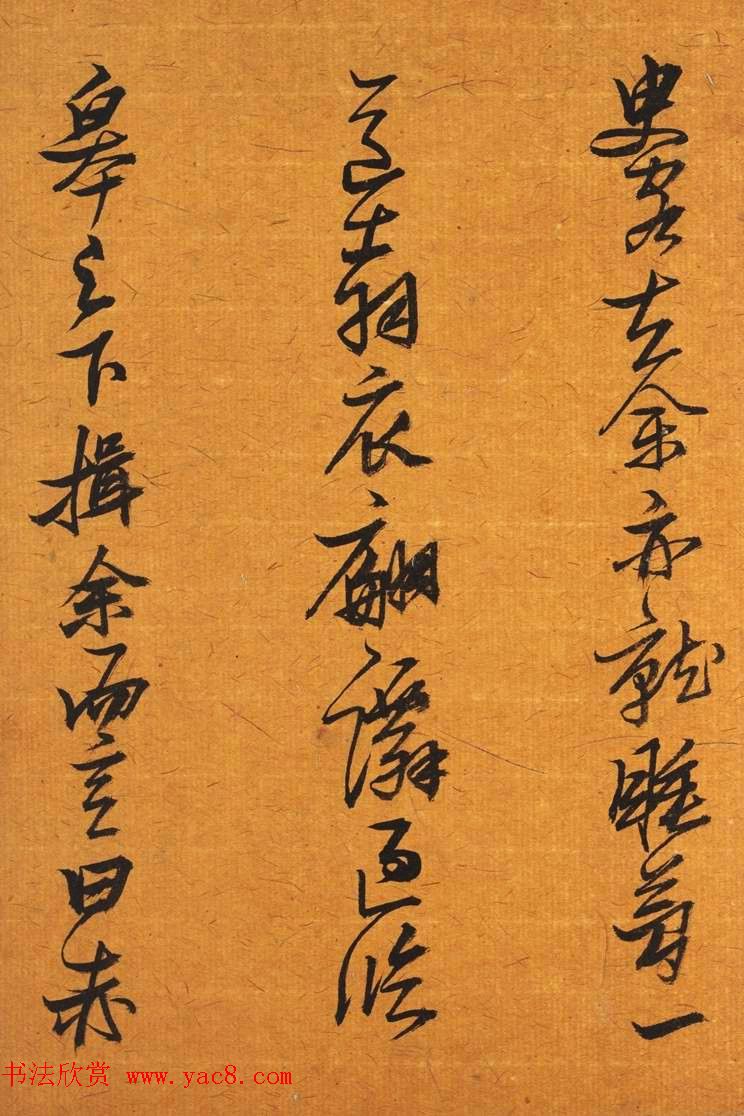 臾客去余亦就睡夢一
道士羽衣翩躚過臨
皋之下揖余而言曰赤
书法欣赏 www.yac8.com